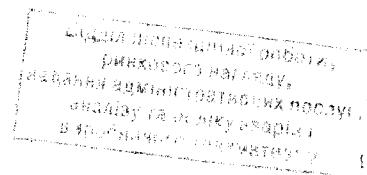 Відділ експертної роботи,
ринкового нагляду,
надання адміністративних послуг,
аналізу та обліку аварій і
виробничого травматизму